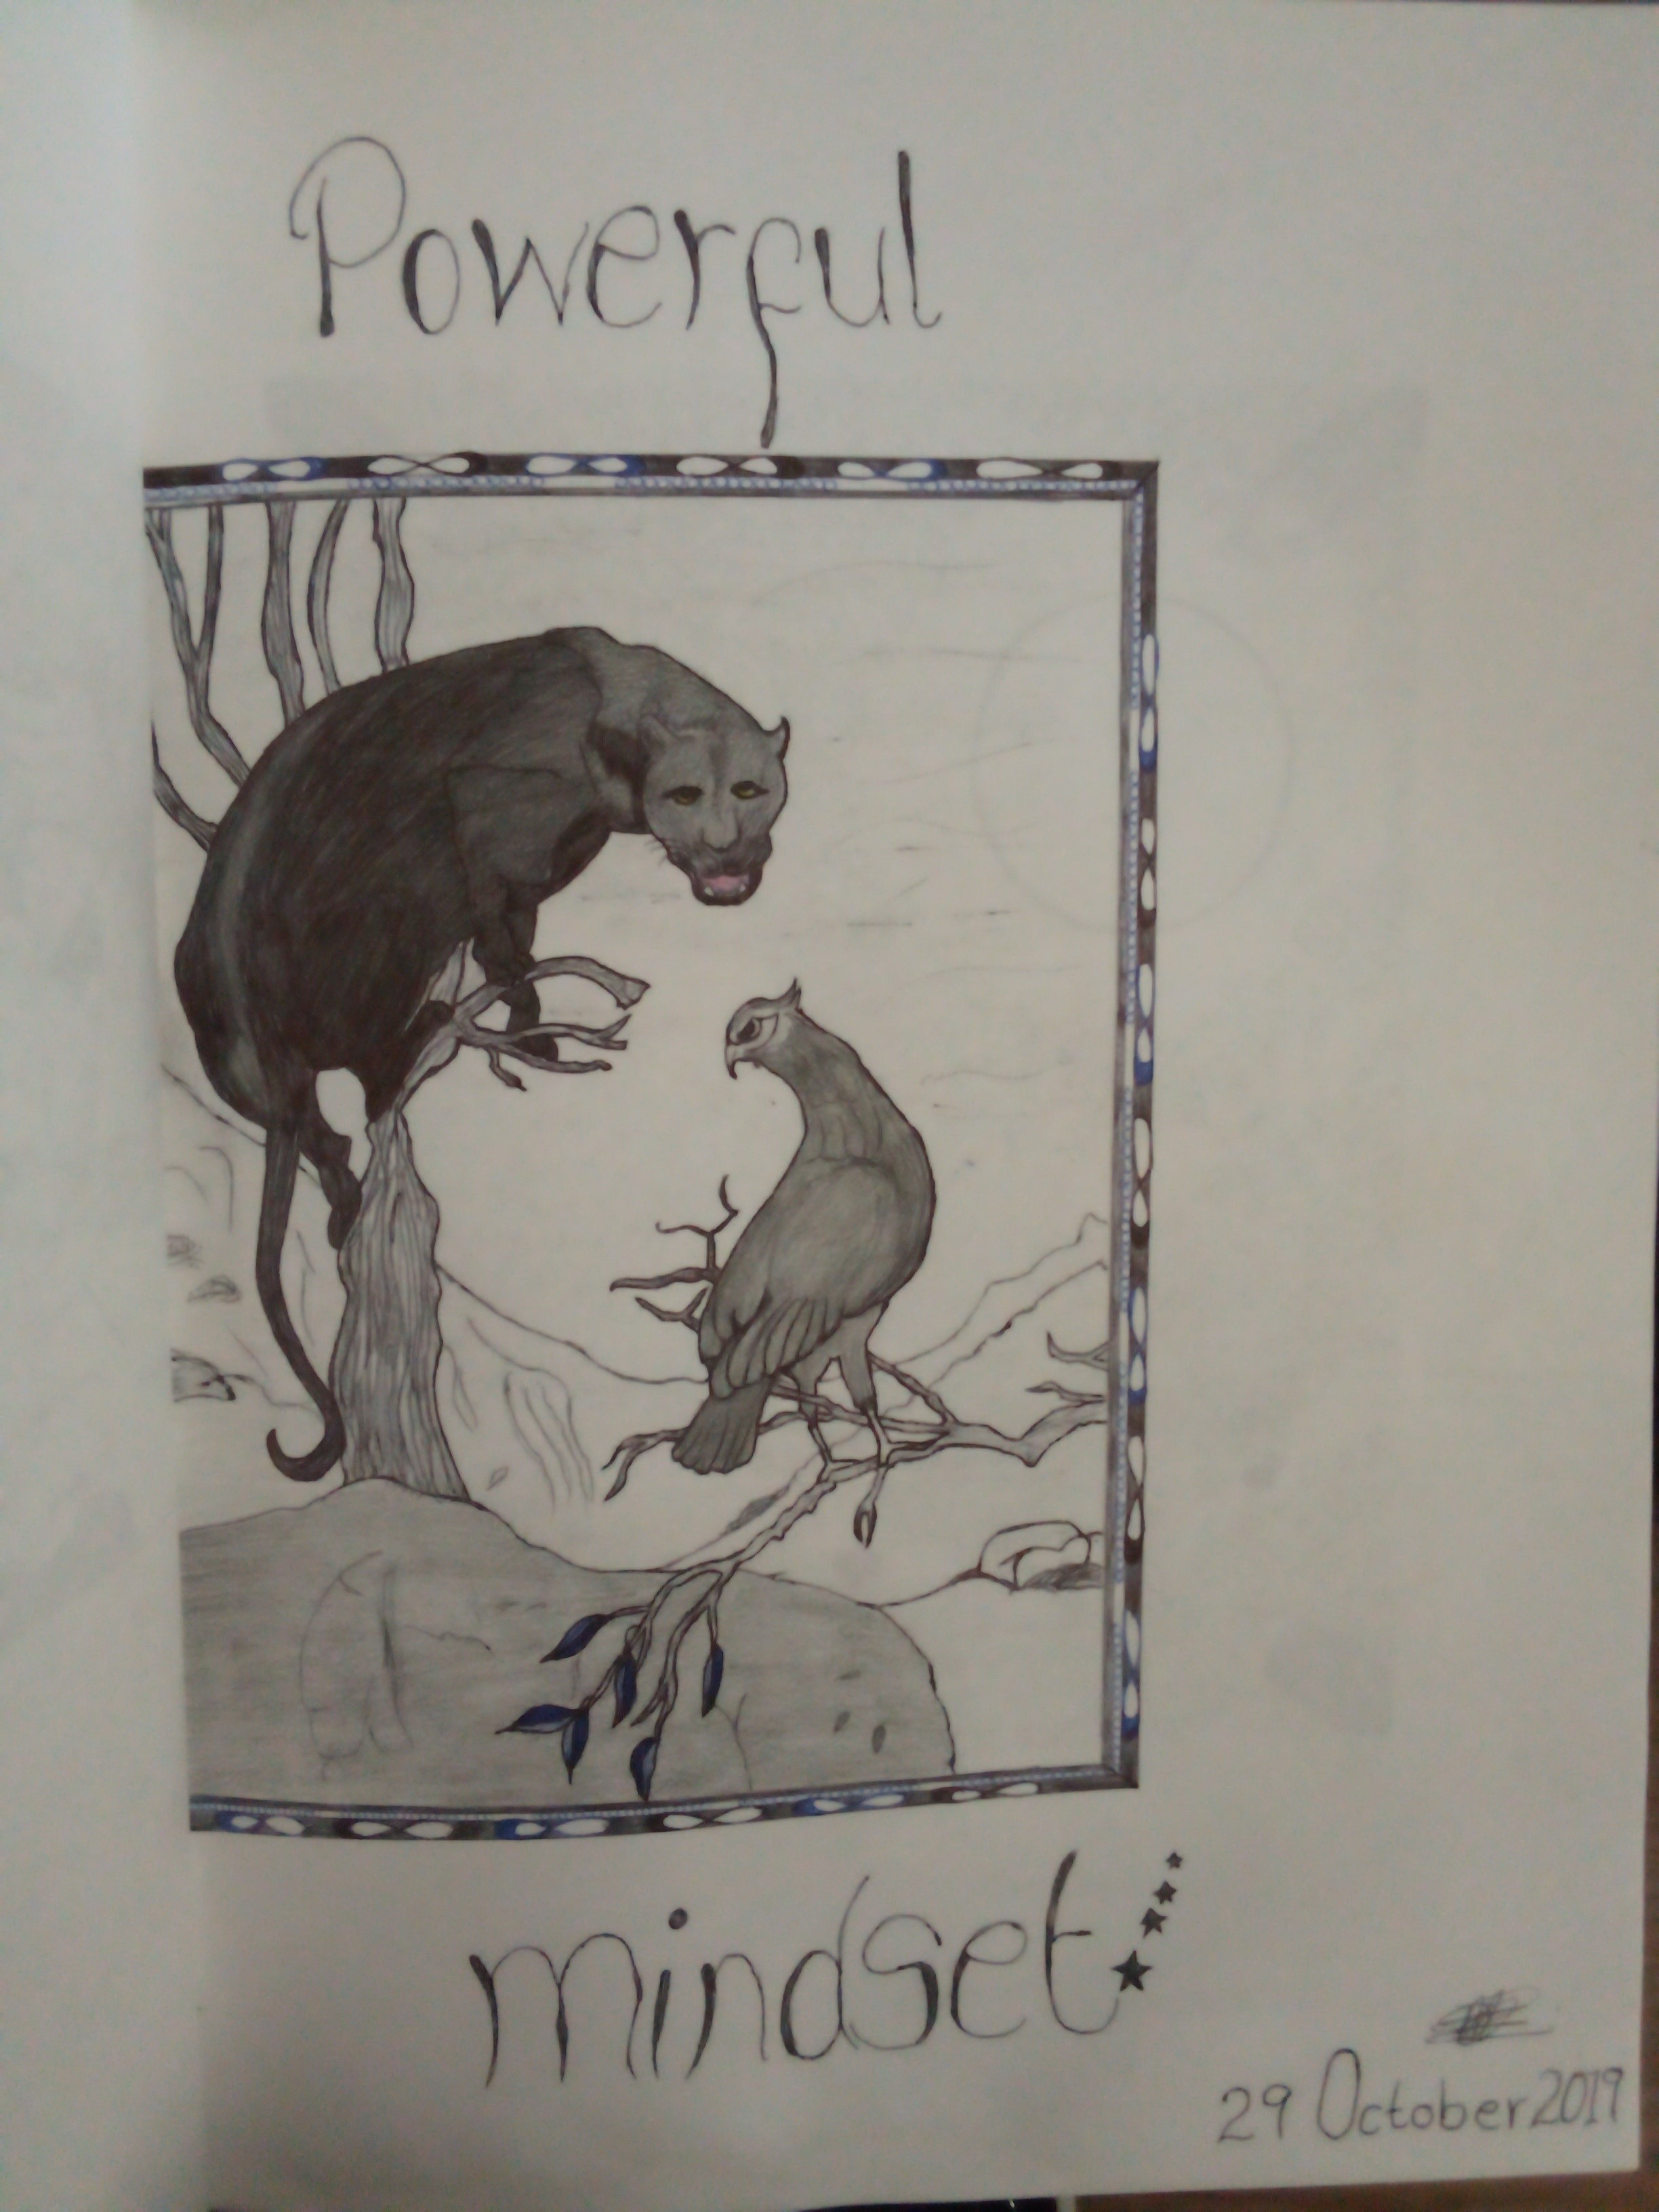 Powerful
mindset
29 October 2019